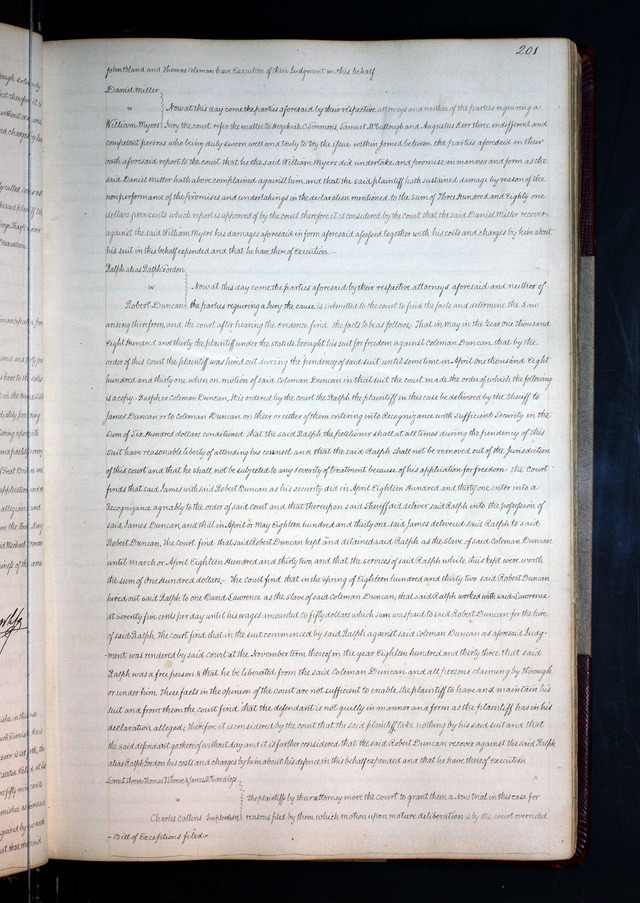 201
John Bland and Thomas Coleman have Execution of their Judgment in this behalf
Daniel Miller
vs Now at this day come the parties aforesaid by their respective attorneys and neither of the parties requiring a
William Myers Jury the court refer the matter to Hezekiah C Simmons, Samuel McCullough and Augustus Kerr three indifferent and
competent persons who being duly sworn well and truly to try the issue within joined between the parties aforesaid on their
oath aforesaid report to the court that he the said William Myers did undertake and promise in manner and form as the
said Daniel Miller hath above complained against him, and that the said plaintiff hath sustained damage by reason of the
non performance of the promises and undertakings in the declaration mentioned to the Sum of Three Hundred and Eighty one
dollars five cents which report is approved of by the court therefore it is considered by the Court that the said Daniel Miller recover
against the said William Myers his damages aforesaid in form aforesaid assessed together with his costs and charges by him about
his suit in this behalf expended and that he have thereof Execution
Ralph alias Ralph Gordon
vs Now at this day come the parties aforesaid by their respective attorneys aforesaid and neither of
Robert Duncan the parties requiring a Jury the cause is submitted to the court to find the facts and determine the Law
arising therefrom, and the court after hearing the evidence find the facts to be as follows, That in May in the Year one thousand
Eight Hundred and thirty the plaintiff under the statute brought his suit for freedom against Coleman Duncan, that by the
order of this court the plaintiff was hired out during the pendency of said suit until sometime in April one thousand Eight
hundred and thirty one when on motion of said Coleman Duncan in that suit the court made the order of which the following
is a copy. Ralph vs Coleman Duncan, It is ordered by the court the Ralph the plaintiff in this case be delivered by the Sheriff to
James Duncan or to Coleman Duncan on their or either of them entering into Recognizance with Sufficient Security in the
Sum of Six Hundred dollars conditioned, that the said Ralph the petitioner shall at all times during the pendency of this
suit have reasonable liberty of attending his counsel, and that the said Ralph shall not be removed out of the Jurisdiction
of this court and that he shall not be subjected to any severity of treatment because of his application for freedom - the Court
finds that said James with said Robert Duncan as his security did in April Eighteen Hundred and thirty one enter into a
Recognizance agreably to the order of said court and that thereupon said Sheriff did deliver said Ralph into the possession of
said James Duncan, and that in April or May Eighteen hundred and thirty one said James delivered said Ralph to said
Robert Duncan, The court find that said Robert Duncan kept and detained said Ralph as the slave of said Coleman Duncan
until March or April Eighteen Hundred and thirty two, and that the services of said Ralph while thus kept were worth
the sum of One Hundred dollars,- The court find that in the Spring of Eighteen hundred and thirty two said Robert Duncan
hired out said Ralph to one David Lawrence as the slave of said Coleman Duncan, that said Ralph worked with said Lawrence
at seventy five cents per day until his wages amounted to fifty dollars which sum was paid to said Robert Duncan for the hire
of said Ralph, The court find that in the suit commenced by said Ralph against said Coleman Duncan as aforesaid Judg-
-ment was rendered by said court at the November term thereof in the year Eighteen hundred and thirty three that said
Ralph was a free person & that he be liberated from the said Coleman Duncan and all persons claiming by through
or under him These facts in the opinion of the Court are not sufficient to enable the plaintiff to have and maintain his
suit and from them the court find, that the defendant is not guilty in manner and form as the plaintiff has in his
declaration alleged; therefore it is considered by the court that the said plaintiff take nothing by his said suit and that
the said defendant go thereof without day, and it is further considered that the said Robert Duncan recover against the said Ralph
alias Ralph Gordon his costs and charges by him about his defence in this behalf expended and that he have thereof Execution
vs The plaintiffs by their attorney move the court to grant them a New trial in this case for
Charles Collins Impleaded reasons filed by them which motion upon mature deliberation is by the court overruled
- Bill of Exceptions filed -